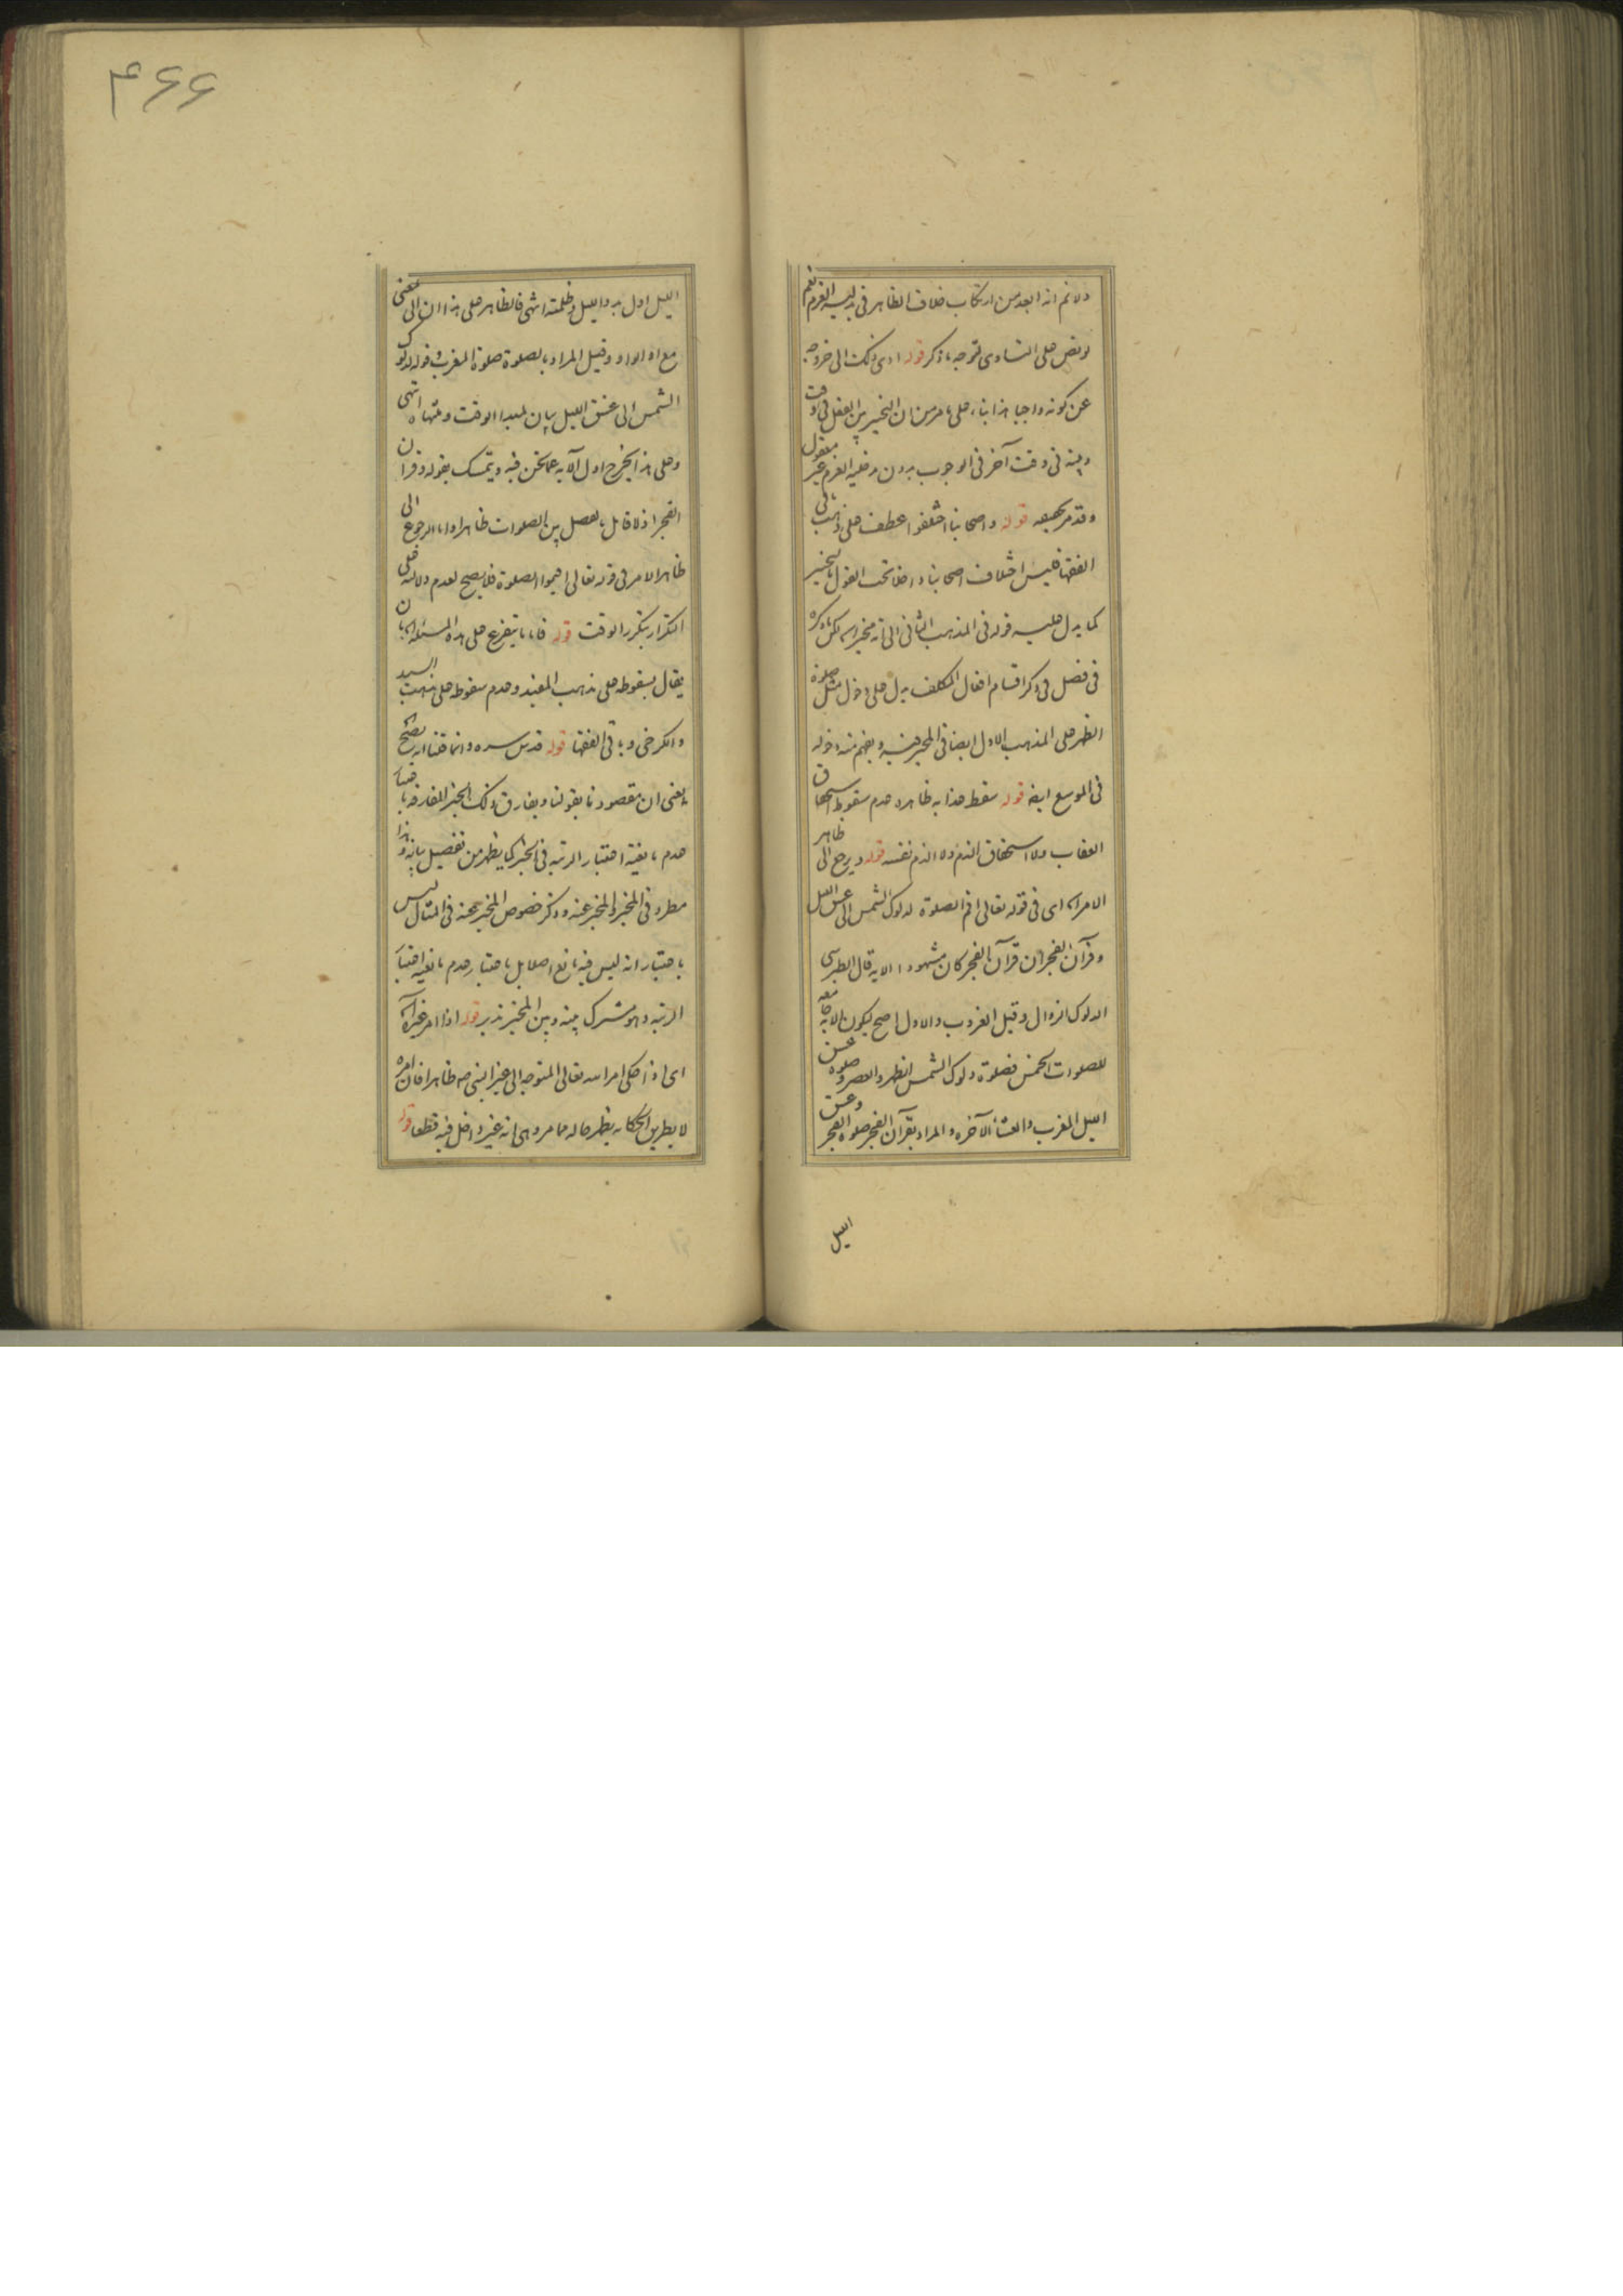 ولا نم انه ابعد من ارتكاب خلاف الظاهر فى بدلية العزم نعم
لو نص على التساوى لتوجه ما ذكر قوله ادى ذلك الى خروجه
عن كونه واجبا هذا بناء على ما مر من ان التخيير بين الفعل فى وقت
وبينه فى وقت آخر فى الوجوب بدون مدخلية العزم غير معقول
وقد مر قوله واصحابنا اختلفوا عطف على ذهب
الفقها فليس اختلاف اصحابنا داخلا تحت القول بالتخيير
كما يدل عليه قوله فى المذهب الثانى الى انه مخير لكن ما ذكره
فى فصل فى ذكر اقسام افعال المكلف يدل على دخول مثل صلوة
الظهر على المذهب الاول ايضا فى المخير فيه ويفهم منه دخوله
فى الموسع ايضا قوله سقط عقابه ظاهره عدم سقوط استحقاق
العقاب ولا استحقاق الذم ولا الذم نفسه قوله ويرجع الى ظاهر
الامر اى فى قوله تعالى اقم الصلوة لدلوك الشمس الى غسق الليل
وقرآن الفجر ان قرآن الفجر كان مشهودا الايه قال الطبرسى
الدلوك الزوال وقيل الغروب والاول اصح ليكون الايه جامعه
للصلوات الخمس فصلوة دلوك الشمس الظهر والعصر وصلوة غسق
الليل المغرب والعشا الآخره والمراد بقرآن الفجر صلوة الفجر وغسق
الليل
۴۶۶
الليل اول بدو الليل وظلمته انتهى فالظاهر على هذا ان الى بمعنى
مع او الواو وقيل المراد بالصلوة صلوة المغرب وقوله لدلوك
الشمس الى غسق الليل بيان لمبدا الوقت ومنتهاه انتهى
وعلى هذا يخرج اول الآيه عما نحن فيه ويتمسك بقوله وقرآن
الفجر اذ لا قائل بالفصل بين الصلوات ظاهرا واما الرجوع الى
ظاهر الامر فى قوله تعالى اقيموا الصلوة فلا يصح لعدم دلالته على
التكرار بتكرر الوقت قوله فاما ما يتفرع على هذه المسئله بان
يقال بسقوطه على مذهب المفيد وعدم سقوطه على مذهب السيد
والكرخى وباقى الفقها قوله قدس سره وانما قلنا انه يصح
يعنى ان مقصودنا بقولنا ويفارق ذلك الخبر المفارقه باعتبار
عدم مانعية اعتبار الرتبه فى الخبر كما يظهر من تفصيل بيانه وهذا
مطرد فى المخبر والمخبر عنه وذكر خصوص المخبر عنه فى المثال ليس
باعتبار انه ليس فيه مانع اصلا بل باعتبار عدم مانعيه اعتبار
الرتبه وهو مشترك بينه وبين المخبر تدبر قوله اذا امر غيره
اى اذا حكى امر الله تعالى المتوجه الى غير النبى ص ظاهرا فان امره
لا بطريق الحكايه يظهر حاله مما مر وهى انه غير داخل فيه قطعا قوله